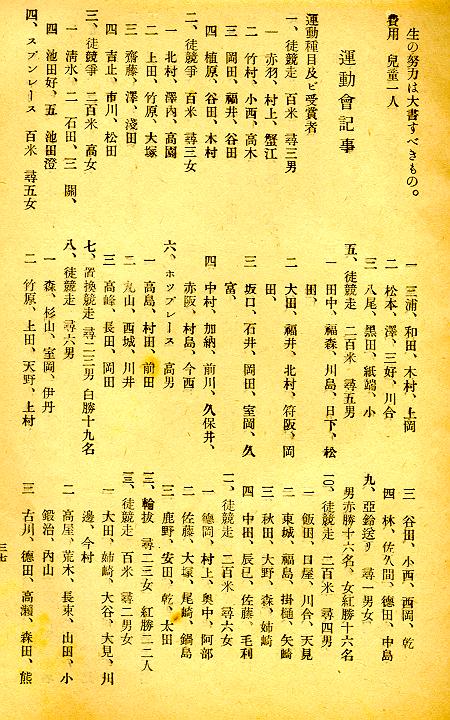 生の努力は大書すべきもの。
費用 兒童一人
運動會記事
運動種目及ビ受賞者
一、徒競走 百米 尋三男
一 赤羽、村上、蟹江
二 竹村、小西、高木
三 岡田、福井、谷田
四 植原、谷田、木村
二、徒競爭 百米 尋三女
一 北村、澤內、高園
二 上田、竹原、大塚
三 齋藤、澤、淺田
四 吉止、市川、松田
三、徒競爭 二百米 高女
一 淸水、二 石田、三 關、
四 池田好、五 池田澄
四、スプンレース 百米 尋五女
一 三浦、和田、木村、上岡
二 松本、澤、三好、川合
三 八尾、黑田、紙端、小
五、徒競走 二百米 尋五男
一 田中、福森、川島、日下、松
田、
二 大田、福井、北村、笹阪、岡
田、
三 坂口、石井、岡田、室岡、久
富、
四 中村、加納、前川、久保井、
赤阪、村島、今西
六、ホツプレース 高男
一 高島、村田、前田
二 丸山、西城、川井
三 高峰、長田、岡田
七、置換競走 尋二三男 白勝十九名
八、徒競走 尋六男
一 森、杉山、室岡、伊丹
二 竹原、上田、天野、上村
三 谷田、小西、西岡、乾
四 林、佐久間、德田、中島
九、亞鈴送リ 尋一男女
男赤勝十六名、女紅勝十六名
一〇、徒競走 二百米 尋四男
一 飯田、日屋、川合、天見
二 東城、福島、掛樋、矢崎
三 秋田、大野、森、姉崎
四 中田、辰巳、佐藤、毛利
一一、徒競走 二百米 尋六女
一 德岡、村上、奧中、阿部
二 佐藤、大塚、尾崎、鍋島
三 鹿野、安田、乾、太田
三、輪拔 尋二三女 紅勝二二人
三、徒競走 百米 尋二男女
一 大田、姉崎、大谷、大見、川
邊、今村
二 高屋、荒木、長束、山田、小
鍛治、內山
三 古川、德田、高瀨、森田、熊
三七